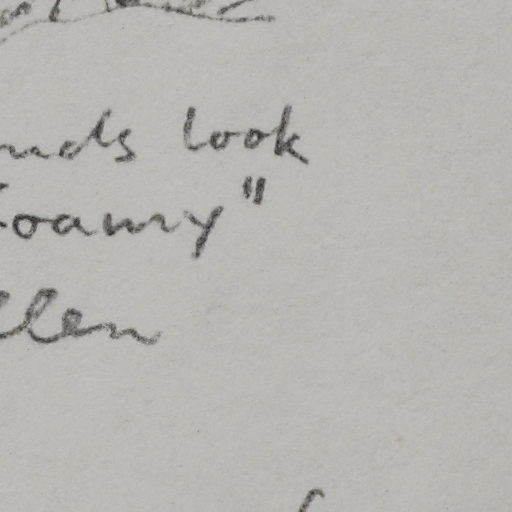 nds look
oamy"
llen